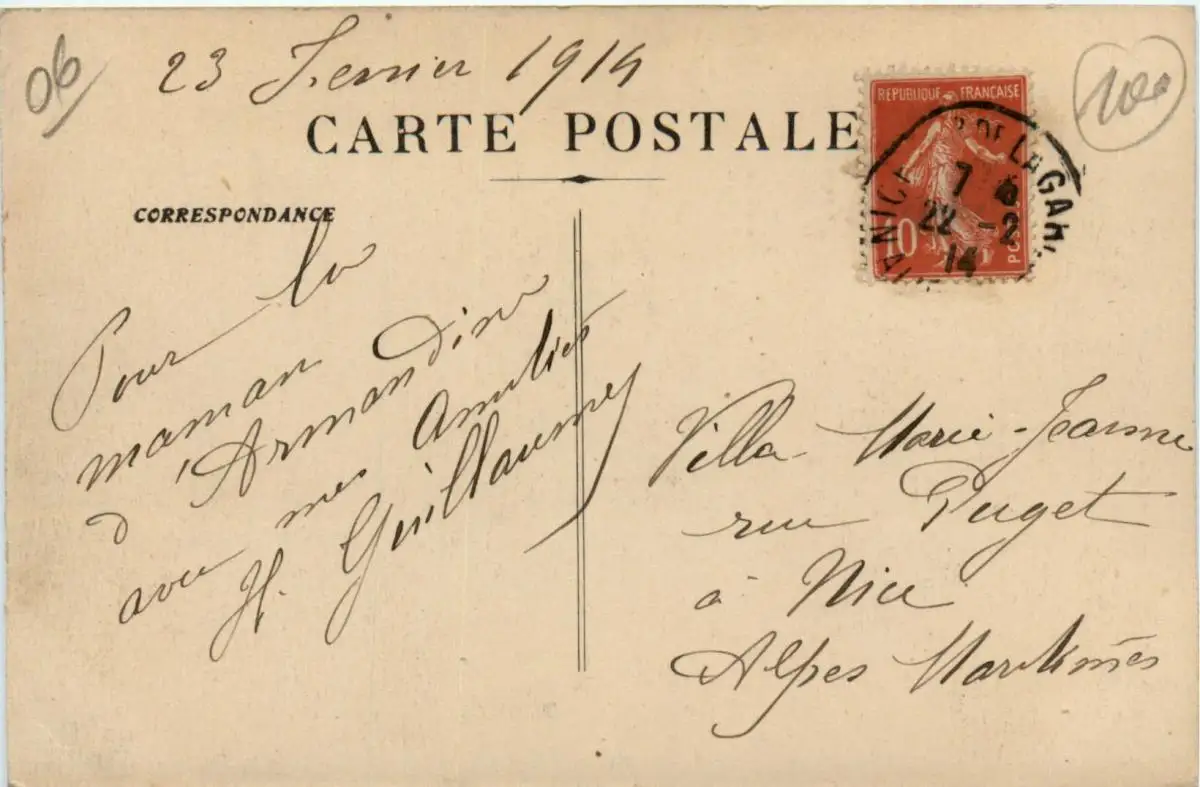 06
23 Fevrier 1914
100
CARTE POSTALE
REPUBLIQUE FRANÇAISE
10
NICE
R. DE LA GARE
7
22 -2
14
CORRESPONDANCE
Pour la
maman
d'Armandine
avec mes Amitiés
H. Guillaume
Villa Marie-Jeanne
rue Puget
à Nice
Alpes Maritimes